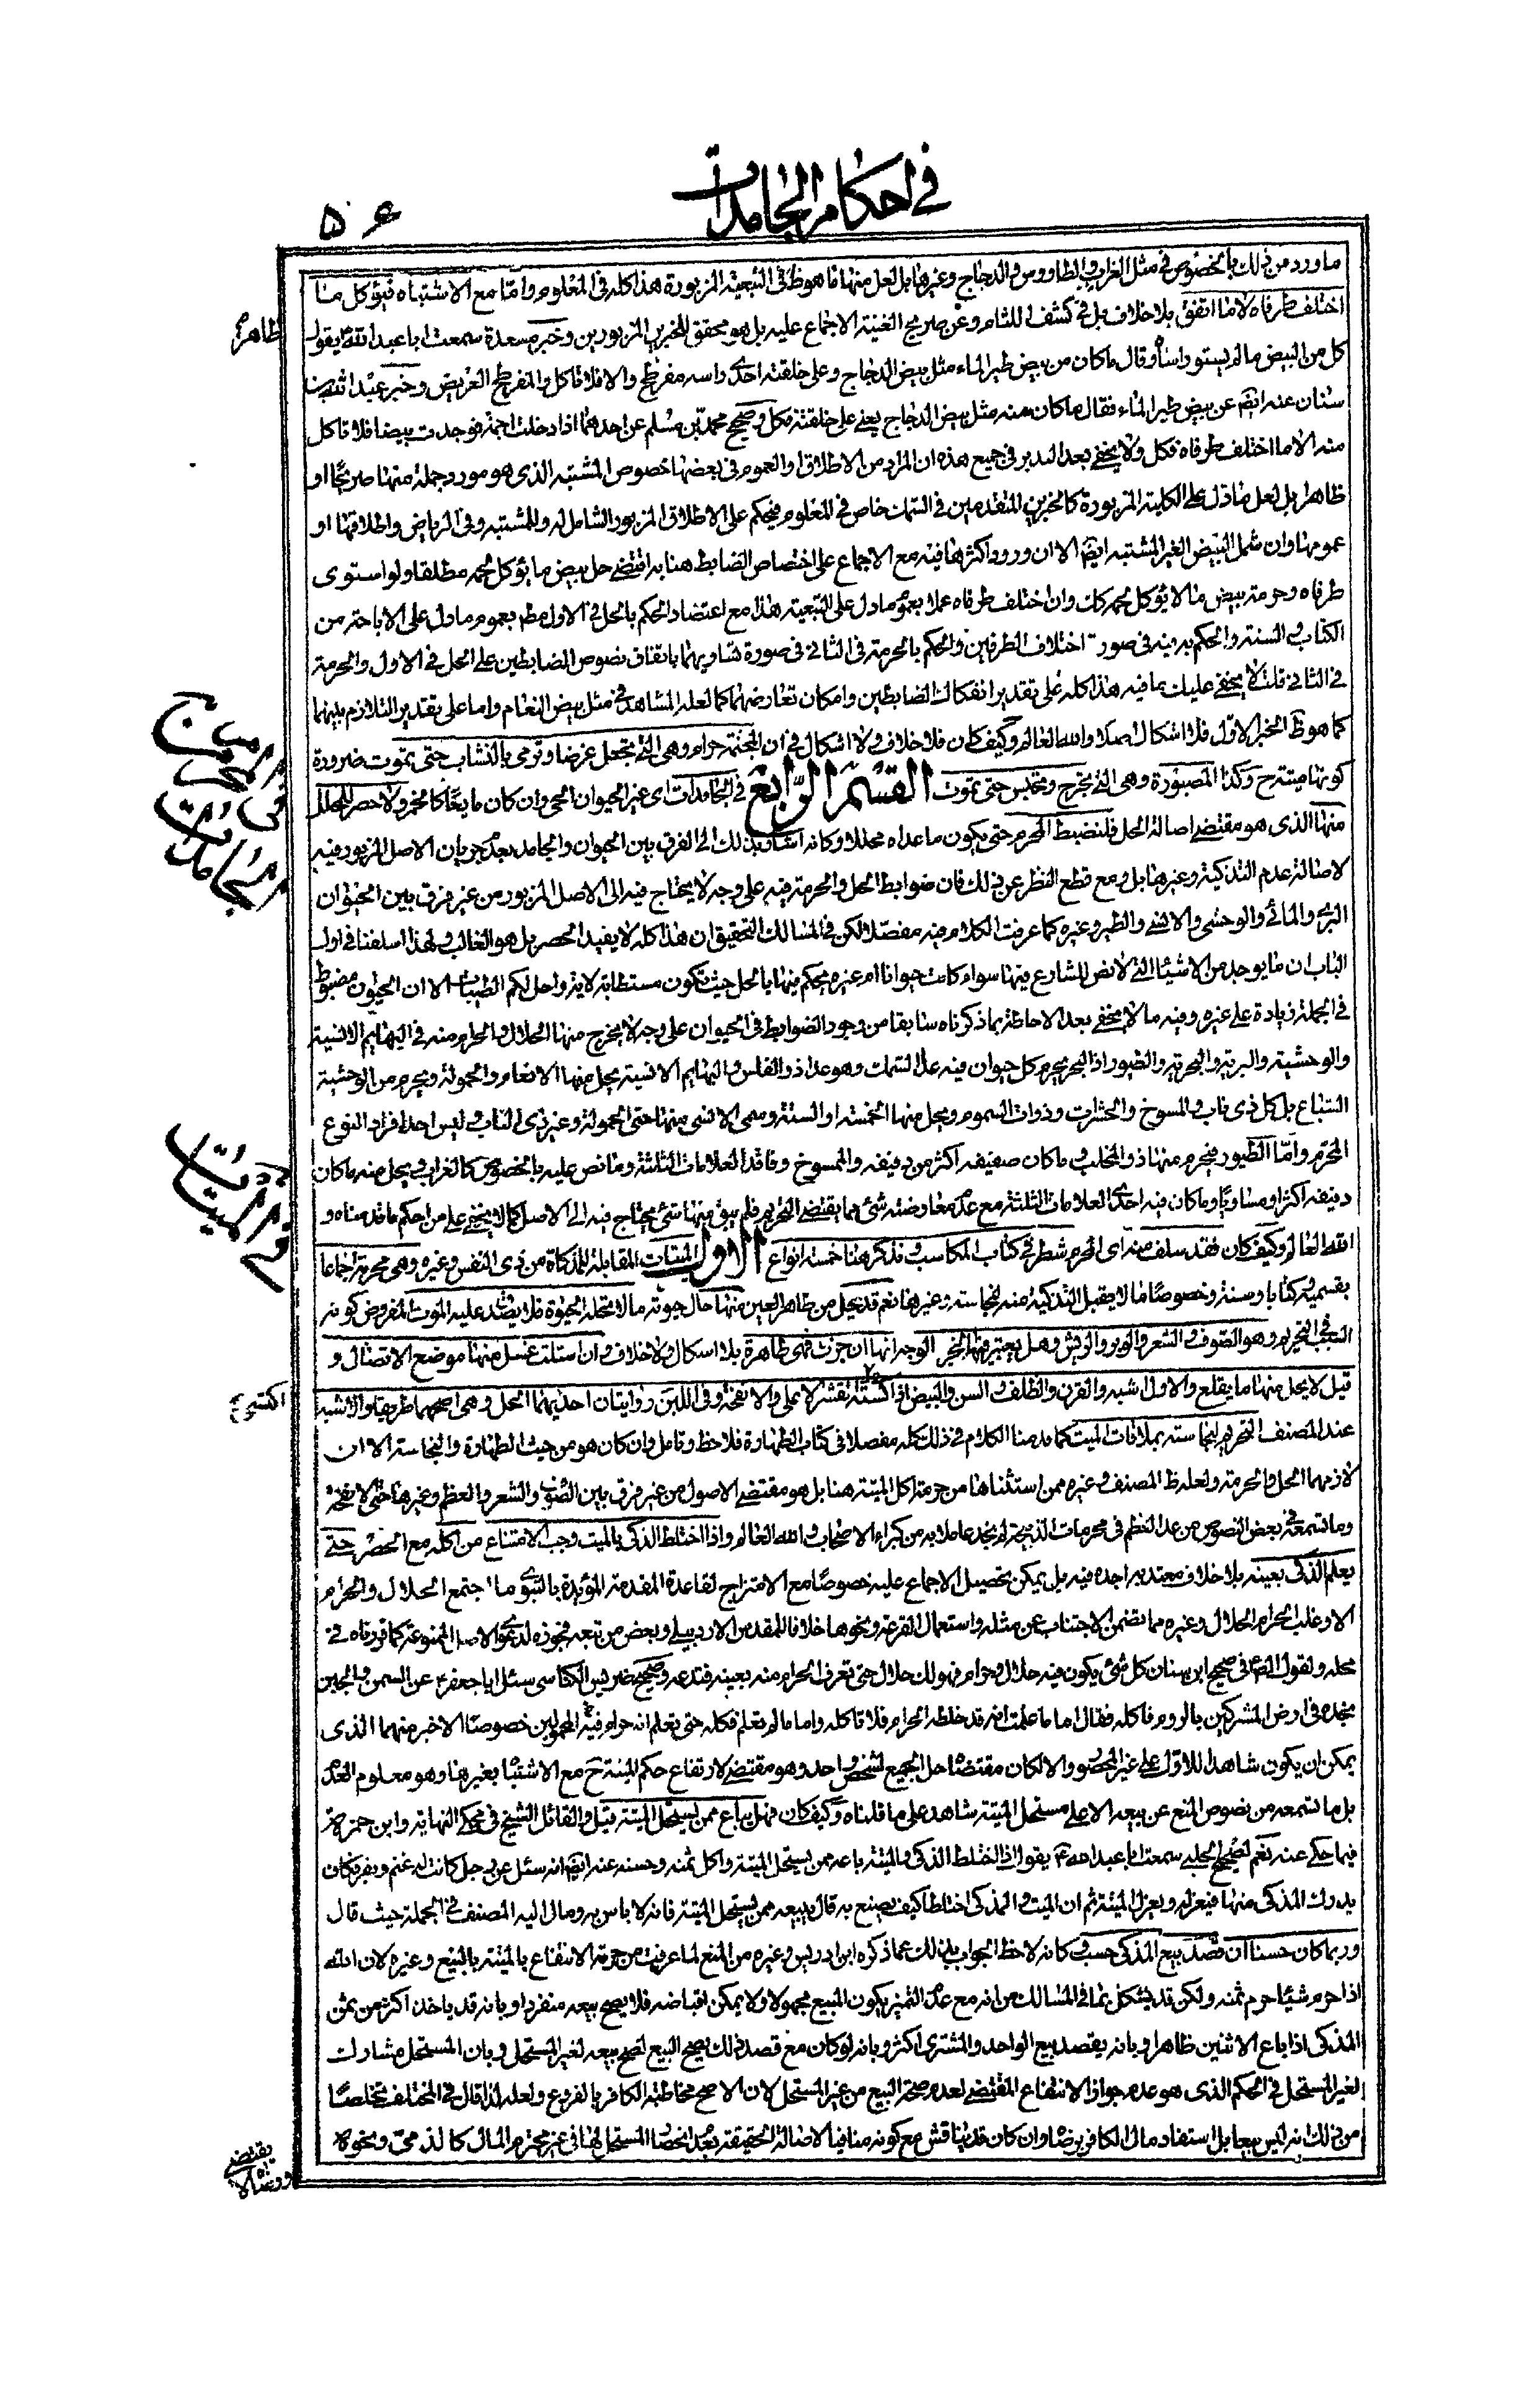 في احكام الجامدات
۵۶
ما ورد من ذلك بالخصوص في مثل الغراب والطاووس والدجاج وغيرها بل لعل منها ما هو ظ في التبعية المزبورة هذا كله في المعلوم واما مع الاشتباه فيؤكل ما
اختلف طرفاه لا ما اتفق بلا خلاف بل في كشف اللثام وعن صريح الغنية الاجماع عليه بل هو محقق للخبرين المزبورين وخبر مسعدة سمعت ابا عبد الله يقول
ظاهره
كل من البيض ما لم يستو راساه وقال ما كان من بيض طير الماء مثل بيض الدجاج وعلى خلقته احدى راسه مفرطح والا فلا تاكل والمفرطح العريض وخبر عبد الله بن
سنان عنه ايض عن بيض طير الماء فقال ما كان منه مثل بيض الدجاج يعني على خلقته فكل وصحيح محمد بن مسلم عن احدهما اذا دخلت اجمة فوجدت بيضا فلا تاكل
منه الا ما اختلف طرفاه فكل ولا يخفى بعد التدبر في جميع هذه ان المراد من الاطلاق او العموم في بعضها خصوص المشتبه الذي هو مورد جملة منها صريحا او
ظاهرا بل لعل ما دل على الكلية المزبورة كالخبرين المتقدمين في السمك خاص في المعلوم فيحكم على الاطلاق المزبور الشامل له وللمشتبه وفي الرياض واطلاقها او
عمومها وان شمل البيض الغير المشتبه ايض الا ان ورود اكثرها فيه مع الاجماع على اختصاص الضابط هنا به اقتضى حل بيض ما يؤكل لحمه مطلقا ولو استوى
طرفاه وحرمة بيض ما لا يؤكل لحمه كك وان اختلف طرفاه عملا بعموم ما دل على التبعية هذا مع اعتضاد الحكم بالحل في الاول مط بعموم ما دل على الاباحة من
الكتاب والسنة والحكم به فيه في صورة اختلاف الطرفين والحكم بالحرمة في الثاني في صورة تساويهما باتفاق نصوص الضابطين على الحل في الاول والحرمة
في الثاني قلت لا يخفى عليك ما فيه هذا كله على تقدير انفكاك الضابطين وامكان تعارضهما كما لعله المشاهد في مثل بيض النعام واما على تقدير التلازم بينهما
كما هو ظ الخبر الاول فلا اشكال اصلا والله العالم وكيف كان فلا خلاف ولا اشكال في ان المجثمة حرام وهي التي تجعل غرضا وترمى بالنشاب حتى تموت ضرورة
كونها ميتة ح وكذا المصبورة وهي التي تجرح وتحبس حتى تموت القسم الرابع في الجامدات اي غير الحيوان الحي وان كان مايعا كالخمر ولا حصر للمحلل
في الجامدات
منها الذي هو مقتضى اصالة الحل فلنضبط المحرم حتى يكون ما عداه محللا وكانه اشار بذلك الى الفرق بين الحيوان والجامد بعدم جريان الاصل المزبور فيه
لاصالة عدم التذكية وغيرها بل ومع قطع النظر عن ذلك فان ضوابط الحل والحرمة فيه على وجه لا يحتاج فيه الى الاصل المزبور من غير فرق بين الحيوان
البري والمائي والوحشي والانسي والطير وغيره كما عرفت الكلام فيه مفصلا لكن في المسالك التحقيق ان هذا كله لا يفيد الحصر بل هو الغالب ولهذا اسلفنا في اول
الباب ان ما يوجد من الاشياء التي لا نص للشارع فيها سواء كانت حيوانا ام غيره يحكم فيها بالحل حيث تكون مستطابة لاية واحل لكم الطيبات الا ان الحيوان مضبوط
في الجملة زيادة على غيره وفيه ما لا يخفى بعد الاحاطة بما ذكرناه سابقا من وجود الضوابط في الحيوان على وجه لا يخرج منها الحلال والحرام منه في البهايم الانسية
والوحشية والبرية والبحرية والطيور اذ البحر يحرم كل حيوان فيه عدا السمك وهو عدا ذو الفلس والبهايم الانسية يحل منها الانعام والحمولة ويحرم من الوحشية
السباع بل كل ذي ناب والمسوخ والحشرات وذوات السموم ويحل منها الخمسة او الستة ومسمى الانسي منها حتى الحمولة وغير ذي الناب وليس احدا افراد النوع
المحرم واما الطيور فيحرم منها ذو المخلب وما كان صفيفه اكثر من دفيفه والممسوخ وفاقد العلامات الثلثة وما نص عليه بالخصوص كالغراب ويحل منه ما كان
في الميتات
دفيفه اكثر او مساويا وما كان فيه احدى العلامات الثلثة مع عدم معارضته شئ مما يقتضي التحريم فلم يبق منها شئ يحتاج فيه الى الاصل كما لا يخفى على من احكم ما قدمناه و
الله العالم وكيف كان فقد سلف منه اي المحرم شطر في كتاب المكاسب ونذكر هنا خمسة انواع الاول الميتات المقابلة للمذكاة من ذي النفس وغيره وهي محرمة اجماعا
بقسميه وكتابا وسنة وخصوصا ما لا يقبل التذكية منه لنجاسته وغيرها نعم قد يحل من طاهر العين منها حال حيوته ما لا تحله الحيوة فلا يصدق عليه الموت المفروض كونه
السبب في التحريم وهو الصوف والشعر والوبر والريش وهل يعتبر فيها الجز الوجه انها ان جزت فهي طاهرة بلا اشكال ولا خلاف وان استلت غسل منها موضع الاتصال و
قيل لا يحل منها ما يقلع والاول اشبه والقرن والظلف والسن والبيض اذا اكتست قشره الاعلى والانفحة وفي اللبن روايتان احديهما الحل وهي اصحهما طريقا والاشبه
اكتسى
عند المصنف التحريم لنجاسته بملاقات الميت كما قدمنا الكلام في ذلك كله مفصلا في كتاب الطهارة فلاحظ وتامل وان كان هو من حيث الطهارة والنجاسة الا ان
لازمهما الحل والحرمة ولعله ظ المصنف وغيره ممن استثناها من حرمة اكل الميتة هنا بل هو مقتضى الاصول من غير فرق بين الصوف والشعر والعظم وغيرها حتى الانفحة
وما تسمعه في بعض النصوص من عد العظم في محرمات الذبيحة لم نجد عاملا به من كبراء الاصحاب والله العالم واذا اختلط الذكي بالميت وجب الامتناع من اكله مع الحصر حتى
يعلم الذكي بعينه بلا خلاف معتد به اجده فيه بل يمكن تحصيل الاجماع عليه خصوصا مع الامتزاج لقاعدة المقدمة المؤيدة بالنبوي ما اجتمع الحلال والحرام
الا وغلب الحرام الحلال وغيره مما تضمن الاجتناب عن مثله واستعمال القرعة ونحوها خلافا للمقدس الاردبيلي وبعض من تبعه فجوزه لدعوى الاصل الممنوعة كما قررناه في
محله ولقول الص في صحيح ابن سنان كل شئ يكون فيه حلال وحرام فهو لك حلال حتى تعرف الحرام منه بعينه فتدعه وصحيح ضريس الكناسي سئل ابا جعفر عن السمن والجبن
نجده في ارض المشركين بالروم فناكله فقال اما ما علمت انه قد خلطه الحرام فلا تاكله واما ما لم تعلم فكله حتى تعلم انه حرام المحمولين خصوصا الاخير منهما الذي
يمكن ان يكون شاهدا للاول على غير المحصور والا لكان مقتضاه حل الجميع لشخص واحد وهو مقتضى لارتفاع حكم الميتة ح مع الاشتباه بغيرها وهو معلوم العدم
بل ما تسمعه من نصوص المنع عن بيعه الا على مستحل الميتة شاهد على ما قلناه وكيف كان فهل يباع ممن يستحل الميتة قيل والقائل الشيخ في محكي النهاية وابن حمزة
فيما حكي عنه نعم لصحيح الحلبي سمعت ابا عبد الله يقول اذا اختلط الذكي والميتة باعه ممن يستحل الميتة واكل ثمنه وحسنه عنه ايض انه سئل عن رجل كانت له غنم وبقر وكان
يدرك المذكى منها فيعزله ويعزل الميتة ثم ان الميت والمذكى اختلطا كيف يصنع به قال يبيعه ممن يستحل الميتة فانه لا باس به ومال اليه المصنف في الجملة حيث قال
وربما كان حسنا ان قصد بيع المذكى حسب وكانه لاحظ الجواب بذلك عما ذكره ابن ادريس وغيره من المنع لما عرفت من حرمة الانتفاع بالميتة بالبيع وغيره لان الله
اذا حرم شيئا حرم ثمنه ولكن قد يشكل بما في المسالك من انه مع عدم التميز يكون المبيع مجهولا ولا يمكن اقباضه فلا يصح بيعه منفردا وبانه قد ياخذ اكثر من ثمن
المذكى اذا باع الاثنين ظاهرا وبانه يقصد بيع الواحد والمشتري اكثر وبانه لو كان مع قصد ذلك يصح البيع لصح بيعه لغير المستحل وبان المستحل مشارك
لغير المستحل في الحكم الذي هو عدم جواز الانتفاع المقتضي لعدم صحة البيع من غير المستحل لان الاصح مخاطبة الكافر بالفروع ولعله لذا قال في المختلف تخلصا
من ذلك انه ليس بيعا بل استنقاذ مال الكافر برضاه وان كان قد يناقش مع كونه منافيا لاصالة الحقيقة بعدم انحصار المستحل لها في غير محترم المال كالذمي ونحوه